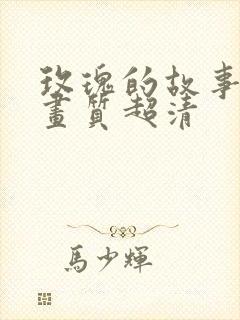 玫瑰的故事
畫質超清
馬少輝